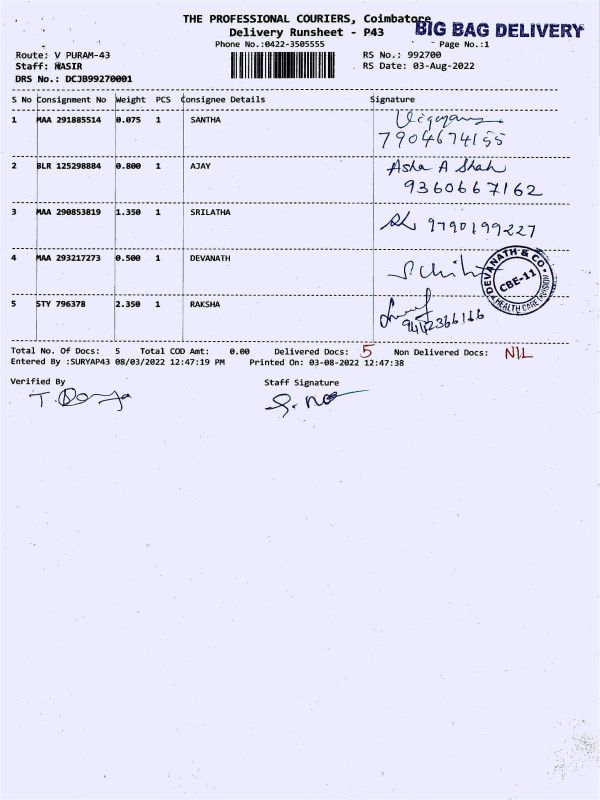 THE PROFESSIONAL COURIERS, Coimbatore
BIG BAG DELIVERY
Delivery Runsheet - P43
Phone No.:0422-3505555
Page No.:1
Route: V PURAM-43
RS No.: 992700
Staff: NASIR
RS Date: 03-Aug-2022
DRS No.: DCJB99270001
S No Consignment No Weight PCS Consignee Details Signature
1 MAA 291885514 0.075 1 SANTHA
7904674155
2 BLR 125298884 0.800 1 AJAY Asha A Shah
9360667162
3 MAA 290853819 1.350 1 SRILATHA 9790199227
4 MAA 293217273 0.500 1 DEVANATH
DEVANATH & CO. CBE-11 HEALTH CARE DIVISION
5 STY 796378 2.350 1 RAKSHA
Total No. Of Docs: 5 Total COD Amt: 0.00 Delivered Docs: 5 Non Delivered Docs: NIL
Entered By :SURYAP43 08/03/2022 12:47:19 PM Printed On: 03-08-2022 12:47:38
Verified By Staff Signature